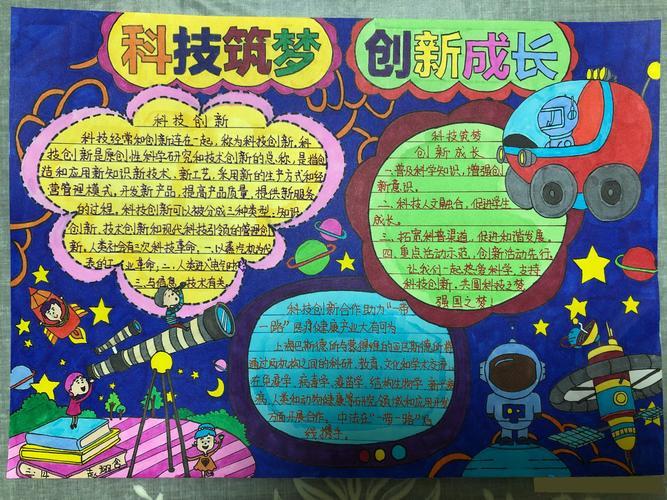 科技筑梦
创新成长
科技创新
科技经常和创新连在一起，称为科技创新，科
技创新是原创性科学研究和技术创新的总称，是指创
造和应用新知识新技术、新工艺，采用新的生产方式和经
营管理模式，开发新产品，提高产品质量，提供新服务
的过程，科技创新可以被分成三种类型，知识
创新、技术创新和现代科技引领的管理创
新。人类社会有三次科技革命，一以蒸汽机为代
表的工业革命，二，人类进入电气时
三，与信息 技术有关
科技筑梦
创新成长
一、普及科学知识，增强创
新意识。
二、科技人文融合，促进学生
成长。
三、拓宽科普渠道，促进和谐发展。
四、重点活动示范，创新活动先行。
让我们一起热爱科学，支持
科技创新，共圆科技之梦
强国之梦！
科技创新合作助力“一带
一路”医疗健康产业大有可为
上海巴斯德所与 巴斯德所
通过两机构之间的科研、教育、文化和学术交流，
在免疫学、病毒学、疫苗学、结构生物学、
人类和动物健康等研究领域和应用开发
方面开展合作。中法在“一带一路”
线携手。